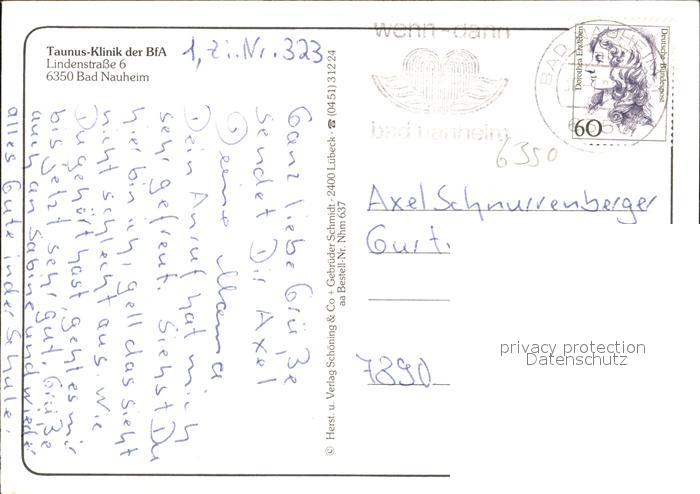 Taunus-Klinik der BfA
Lindenstraße 6
6350 Bad Nauheim
1, Zi. Nr. 323
Ganz liebe Grüße
sendet Dir Axel
Deine Mama
Dein Anruf hat mich
sehr gefreut. Siehst Du
hier bin ich, gell das sieht
nicht schlecht aus. Wie
Du gehört hast, geht es mir
bis jetzt sehr gut. Grüße
auch an Sabine und wieder
alles Gute in der Schule.
© Herst. u. Verlag Schöning & Co + Gebrüder Schmidt · 2400 Lübeck · ☎ (04 51) 3 12 24
aa Bestell-Nr. Nhm 637
wenn - dann
bad nauheim
BAD NAUHEIM
Dorothea Erxleben
Deutsche Bundespost
60
6350
Axel Schnurrenberger
Gurt.
7890
privacy protection
Datenschutz